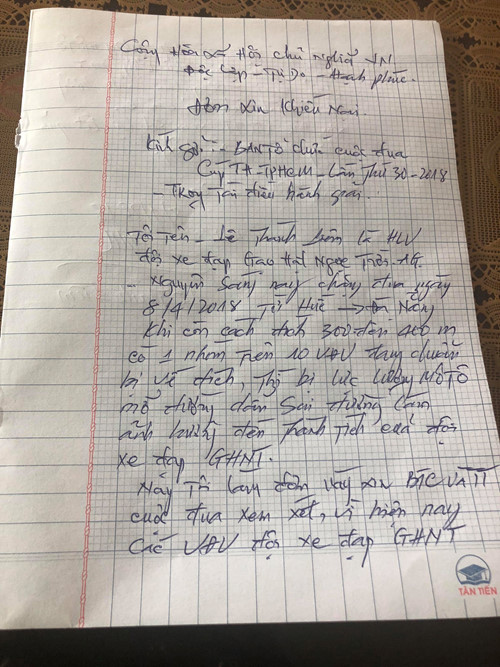 Cộng Hòa Xã Hội chủ Nghĩa VN
Độc Lập - Tự Do - Hạnh phúc.
Đơn Xin Khiếu Nại.
Kính gửi: - BAN Tổ chức cuộc đua
Cúp TH - TPHCM - Lần Thứ 30 - 2018
- Trọng Tài điều hành giải.
Tôi Tên - Lê Thanh là HLV
đội xe đạp Gạo Hạt Ngọc Trời. AG.
- Nguyên Sáng nay chặng đua ngày
8/4/2018 Từ Huế → Đà Nẵng
Khi còn cách đích 300 đến 400 m
có 1 nhóm Trên 10 VĐV đang chuẩn
bị về đích, Thì bị lực lượng Mô Tô
mở đường dẫn Sai đường làm
ảnh hưởng đến Thành Tích của đội
xe đạp GHNT.
Nay Tôi làm đơn này xin BTC VÀ TT
cuộc đua xem xét, vì hiện nay
Các VĐV đội xe đạp GHNT
TÂN TIẾN